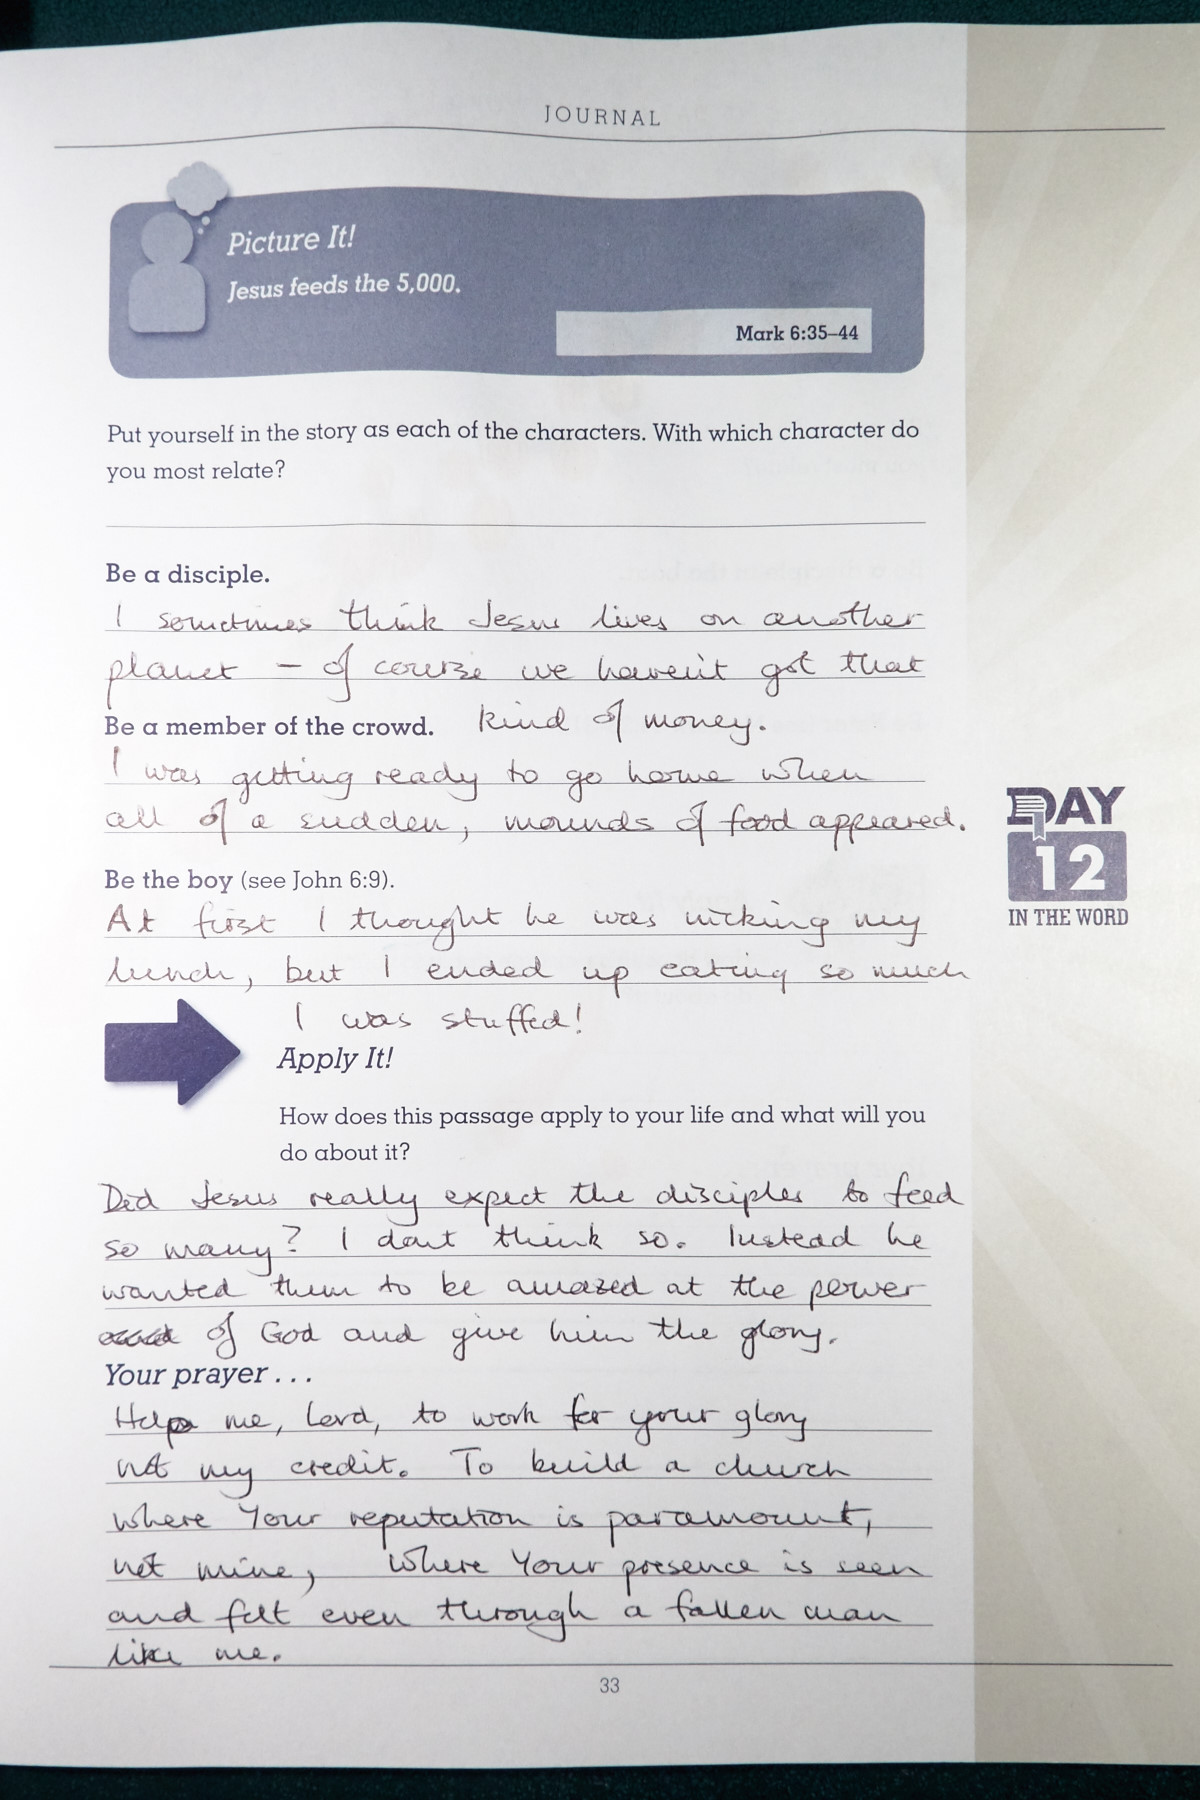 JOURNAL
Picture It!
Jesus feeds the 5,000.
Mark 6:35–44
Put yourself in the story as each of the characters. With which character do
you most relate?
Be a disciple.
I sometimes think Jesus lives on another
planet – of course we haven't got that
kind of money.
Be a member of the crowd.
I was getting ready to go home when
all of a sudden, mounds of food appeared.
Be the boy (see John 6:9).
At first I thought he was nicking my
lunch, but I ended up eating so much
I was stuffed!
Apply It!
How does this passage apply to your life and what will you
do about it?
Did Jesus really expect the disciples to feed
so many? I dont think so. Instead he
wanted them to be amazed at the power
of God and give him the glory.
Your prayer . . .
Help me, Lord, to work for your glory
not my credit. To build a church
where Your reputation is paramount,
not mine, where Your presence is seen
and felt even through a fallen man
like me.
33
DAY
12
IN THE WORD